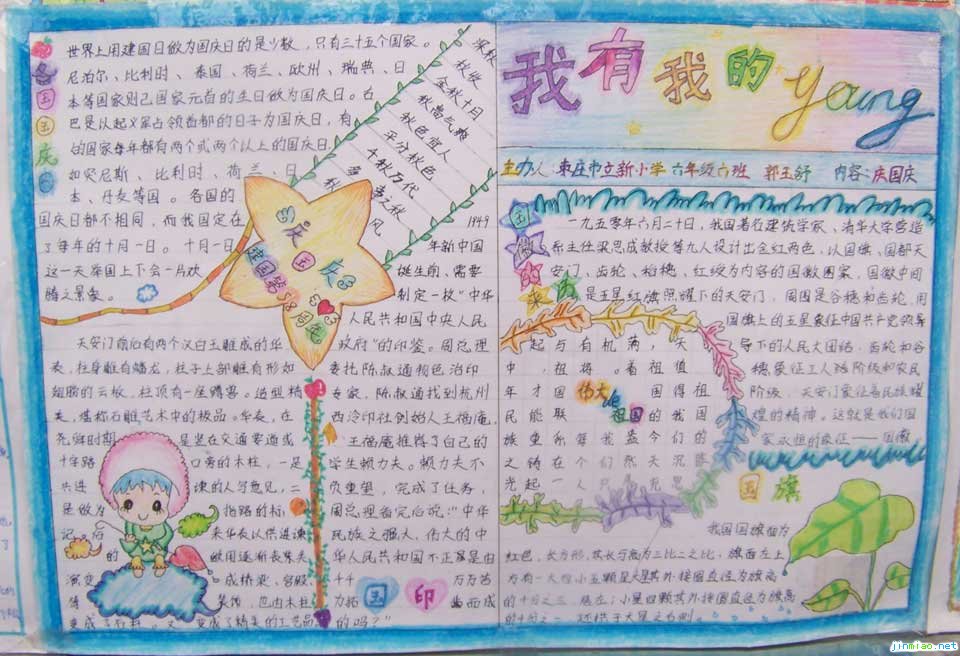 世界上用建国日做为国庆日的是少数，只有三十五个国家。
尼泊尔、比利时、泰国、荷兰、欧州、瑞典、日
本等国家则已国家元首的生日做为国庆日。古
巴是以起义军占领首都的日子为国庆日，有
的国家每年都有两个或两个以上的国庆日，
如突尼斯、比利时、荷兰、日
本、丹麦等国。各国的
国庆日都不相同，而我国定在
了每年的十月一日。十月一日
这一天举国上下会一片欢
腾之景象。
国
庆
秋
金秋十月
秋高气爽
秋色宜人
平分秋色
千秋万代
多之秋
风
国庆
建国
58
周年
天安门前后有两个汉白玉雕成的华
表，柱身雕有蟠龙，柱子上部雕有形如
翅膀的云板，柱顶有一座蹲兽。造型精
美，堪称石雕艺术中的极品。华表，在
尧舜时期是竖在交通要道或
十字路口旁的木柱，一是
供进谏的人写意见，二
是做为指路的标
记。后来华表以供进谏
的做用逐渐丧失
演变成桥梁、宫殿
等装饰，也由木柱
变成了石料，又变成了精美的工艺品。
1949
年新中国
诞生前，需要
制定一枚“中华
人民共和国中央人民
政府”的印鉴。周总理
委托陈叔通物色治印
专家，陈叔通找到杭州
西泠印社创始人王福庵，
王福庵推荐了自己的
学生赖力夫。赖力夫不
负重望，完成了任务，
周总理指定后说：“中华
民族之强大，伟大的中
华人民共和国不正是由
千千万万普
拓曲而成
的吗？”
国印
我有我的young
主办人：枣庄市立新小学 六年级六班 郭玉舒 内容：庆国庆
国徽的来历
一九五零年六月二十日，我国著名建筑学家、清华大学营造
系主任梁思成教授等九人设计出金红两色，以国旗、国都天
安门、齿轮、稻穗、红绶为内容的国徽图案，国徽中间
是五星红旗照耀下的天安门，周围是谷穗和齿轮，用
国旗上的五星象征中国共产党领导
导下的人民大团结，齿轮和谷
穗象征工人阶级和农民
阶级，天安门象征着民族耀
煌的精神。这就是我们国
家永恒的象征——国徽
起与有机满，天
中，祖将。着祖值
年才国伟大的祖国国得祖
民能联的我国
族重所等我益今们的
之铸在个们然天沉
光起一人只
国旗
我国国旗面为
红色，长方形，其长与高为三比二之比，旗面左上
方有一大四小五颗星大星其外接圆直径为旗高
的十分之三，居左；小星四颗其外接圆直径为旗高
的十分之一，环拱于大星之右侧。
jinmiao.net